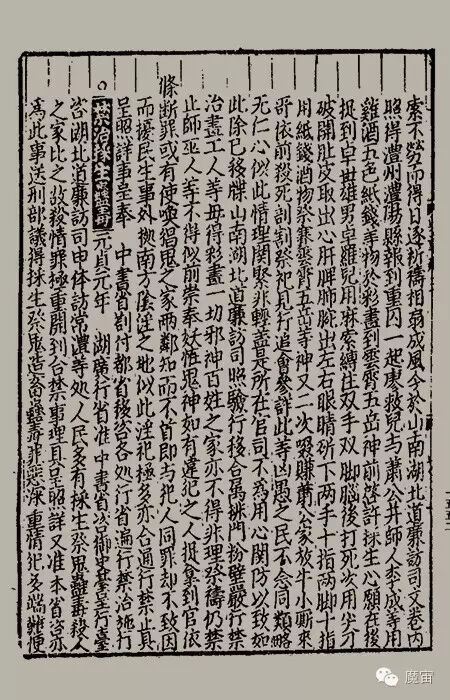 索不勞而得日逐祈禱相扇成風今於山南湖北道廉訪司文卷內
照得澧州澧陽縣報到重囚一起廖救兒與蕭公井師人李成等用
雞酒五色紙錢等物於彩畫到雲霄五岳神前啓許採生心願在後
捉到卓世雄男卓羅兒用麻索縛住双手双脚腦後打死次用尖刀
破開肚皮取出心肝脾肺腸出左右眼睛斫下兩手十指兩脚十指
用紙錢酒物祭賽雲霄五岳等神又二次
哥依前殺死割割祭祀見行追會參詳此等凶愚之民不念同類略
无仁心似此情理関緊非輕盖是所在官司不為用心関防以致如
此除已移牒山南湖北道廉訪司照驗行移合屬排門粉壁嚴行禁
治畫工人等毋得彩畫一切邪神百姓之家亦不得非理祭禱仍禁
止師巫人等不得似前崇奉妖恠鬼神如有違犯之人捉拿到官依
條断罪或有使喚猖鬼之家兩鄰知而不首即與犯人同罪却不致因
而擾民生事外據南方陰淫之地似此淫祀極多亦合通行禁止具
呈照詳事呈奉 中書省劄付都省移咨各処行省遍行禁治施行
禁治採生蠱毒 元貞元年 湖廣行省准 中書省咨御史臺呈行臺
咨湖北道廉訪司申体訪常澧等処人民多有採生祭鬼蠱毒殺人
之家比之故殺情罪極重開到合禁事理具呈照詳又准本省咨亦
為此事送刑部議得採生祭鬼造畜蠱毒罪惡深重情犯多端難便
魔宙